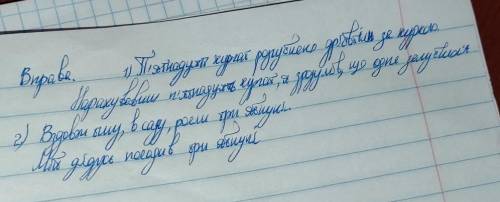 Вправа. 1) П'ятнадцять курчат розгублено дріботіли за куркою
Нарахувавши п'ятнадцять курчат, я зрозумів, що одне загубилося
2) Вздовж тину, в саду, росли три яблуні.
Мій дідусь посадив три яблуні